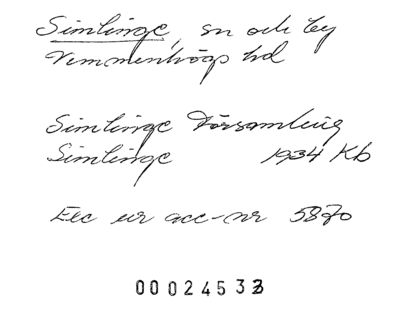 Simlinge, sn och by
Vemmenhögs hd
Simlinge Församling
Simlinge 1934 Kb
Exc ur acc-nr 5870
00024533